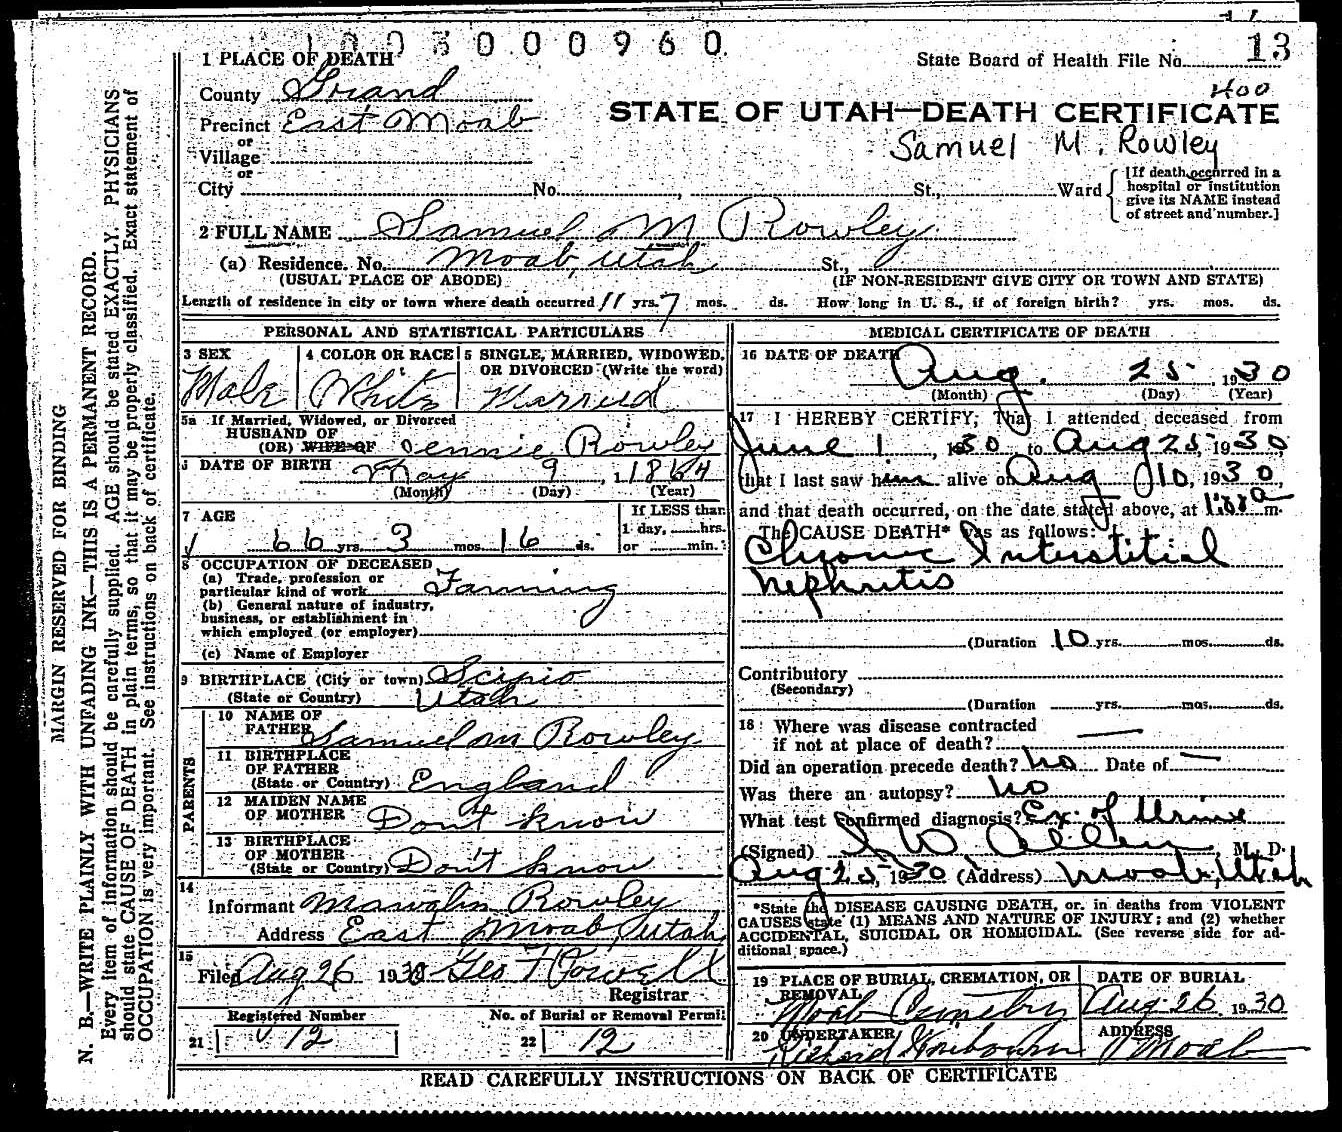 1003000960.
13
1 PLACE OF DEATH
State Board of Health File No.
County Grand
400
STATE OF UTAH—DEATH CERTIFICATE
Precinct East Moab
Samuel M. Rowley
or
Village
or
City No. , St., Ward
[If death occurred in a
hospital or institution
give its NAME instead
of street and number.]
2 FULL NAME Samuel M Rowley
(a) Residence. No. Moab, Utah St.,
(USUAL PLACE OF ABODE) (IF NON-RESIDENT GIVE CITY OR TOWN AND STATE)
Length of residence in city or town where death occurred 11 yrs. 7 mos. ds. How long in U. S., if of foreign birth? yrs. mos. ds.
PERSONAL AND STATISTICAL PARTICULARS
3 SEX
Male
4 COLOR OR RACE
White
5 SINGLE, MARRIED, WIDOWED,
OR DIVORCED (Write the word)
Married
5a If Married, Widowed, or Divorced
HUSBAND OF
(OR) WIFE OF Jennie Rowley
6 DATE OF BIRTH May 9, 1864
(Month) (Day) (Year)
7 AGE
66 yrs. 3 mos. 16 ds.
If LESS than
1 day, hrs.
or min.
8 OCCUPATION OF DECEASED
(a) Trade, profession or
particular kind of work Farming
(b) General nature of industry,
business, or establishment in
which employed (or employer)
(c) Name of Employer
9 BIRTHPLACE (City or town) Scipio
(State or Country) Utah
PARENTS
10 NAME OF
FATHER Samuel M Rowley
11 BIRTHPLACE
OF FATHER
(State or Country) England
12 MAIDEN NAME
OF MOTHER Don't know
13 BIRTHPLACE
OF MOTHER
(State or Country) Don't know
14
Informant Rowley
Address East Moab, Utah
15
Filed Aug 26 1930 Geo F Powell
Registrar
Registered Number
21 12
No. of Burial or Removal Permit
22 12
MEDICAL CERTIFICATE OF DEATH
16 DATE OF DEATH
Aug. 25, 1930
(Month) (Day) (Year)
17 I HEREBY CERTIFY; That I attended deceased from
June 1, 1930 to Aug 25, 1930,
that I last saw him alive on Aug 10, 1930,
and that death occurred, on the date stated above, at m.
The CAUSE DEATH* was as follows:
Chronic Interstitial
nephritis
(Duration 10 yrs. mos. ds.
Contributory
(Secondary)
(Duration yrs. mos. ds.
18 Where was disease contracted
if not at place of death? —
Did an operation precede death? no Date of —
Was there an autopsy? no
What test confirmed diagnosis? Ex. of Urine
(Signed) I W Allen M. D.
Aug 25, 1930 (Address) Moab, Utah
*State the DISEASE CAUSING DEATH, or. in deaths from VIOLENT
CAUSES state (1) MEANS AND NATURE OF INJURY; and (2) whether
ACCIDENTAL, SUICIDAL OR HOMICIDAL. (See reverse side for ad-
ditional space.)
19 PLACE OF BURIAL, CREMATION, OR
REMOVAL
Moab Cemetery
DATE OF BURIAL
Aug. 26 1930
20 UNDERTAKER
Richard
ADDRESS
Moab
READ CAREFULLY INSTRUCTIONS ON BACK OF CERTIFICATE
MARGIN RESERVED FOR BINDING
N. B.—WRITE PLAINLY WITH UNFADING INK—THIS IS A PERMANENT RECORD.
Every item of information should be carefully supplied. AGE should be stated EXACTLY. PHYSICIANS
should state CAUSE OF DEATH in plain terms, so that it may be properly classified. Exact statement of
OCCUPATION is very important. See instructions on back of certificate.